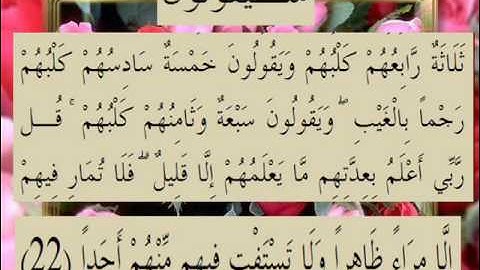 ثَلَاثَةٌ رَّابِعُهُمْ كَلْبُهُمْ وَيَقُولُونَ خَمْسَةٌ سَادِسُهُمْ كَلْبُهُمْ
رَجْماً بِالْغَيْبِ ۖ وَيَقُولُونَ سَبْعَةٌ وَثَامِنُهُمْ كَلْبُهُمْ ۚ قُــل
رَّبِّي أَعْلَمُ بِعِدَّتِهِم مَّا يَعْلَمُهُمْ إِلَّا قَلِيلٌ ۗ فَلَا تُمَارِ فِيهِمْ
إِلَّا مِرَاءً ظَاهِراً وَلَا تَسْتَفْتِ فِيهِم مِّنْهُمْ أَحَداً (22)